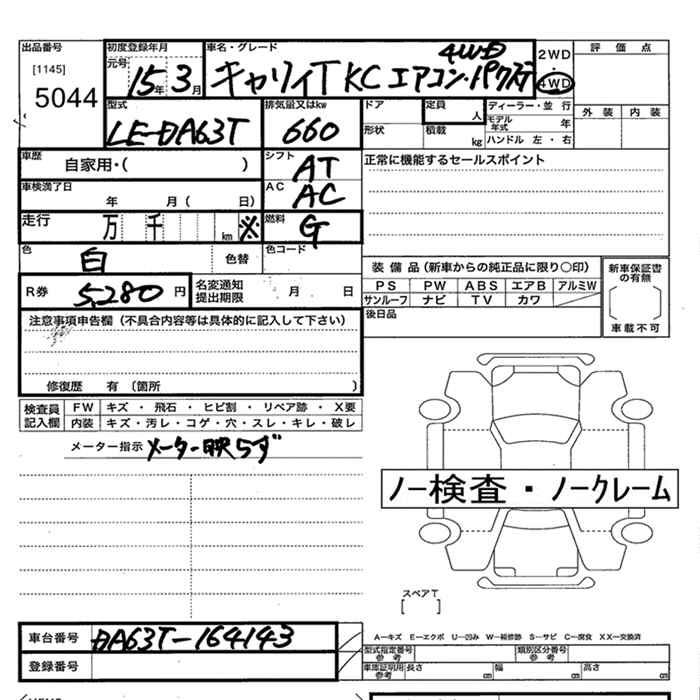 出品番号
[1145]
5044
初度登録年月
元号
15年 3月
車名・グレード
4WD
キャリイT KC エアコン・パワステ
2WD
・
4WD
評価点
外装 内装
型式
LE-DA63T
排気量又はkw
660
ドア
定員
人
ディーラー・並行
モデル年式 年
形状
積載
kg
ハンドル 左・右
車歴
自家用・( )
シフト
AT
正常に機能するセールスポイント
車検満了日
年 月( 日)
AC
AC
走行
万 千 km ※
燃料
G
色
白
色替
色コード
装備品(新車からの純正品に限り○印)
PS PW ABS エアB アルミW
サンルーフ ナビ TV カワ
新車保証書の有無
車載不可
R券 5,280 円
名変通知
提出期限
月 日
後日品
注意事項申告欄(不具合内容等は具体的に記入して下さい)
修復歴 有(箇所 )
検査員
記入欄
FW キズ・飛石・ヒビ割・リペア跡・X要
内装 キズ・汚レ・コゲ・穴・スレ・キレ・破レ
メーター指示 メーター映らず
ノー検査・ノークレーム
スペアT
[ ]
車台番号 DA63T-164143
登録番号
A―キズ E―エクボ U―凹み W―補修跡 S―サビ C―腐食 XX―交換済
型式指定番号
参考
類別区分番号
参考
車庫証明用
参考
長さ cm 幅 cm 高さ cm